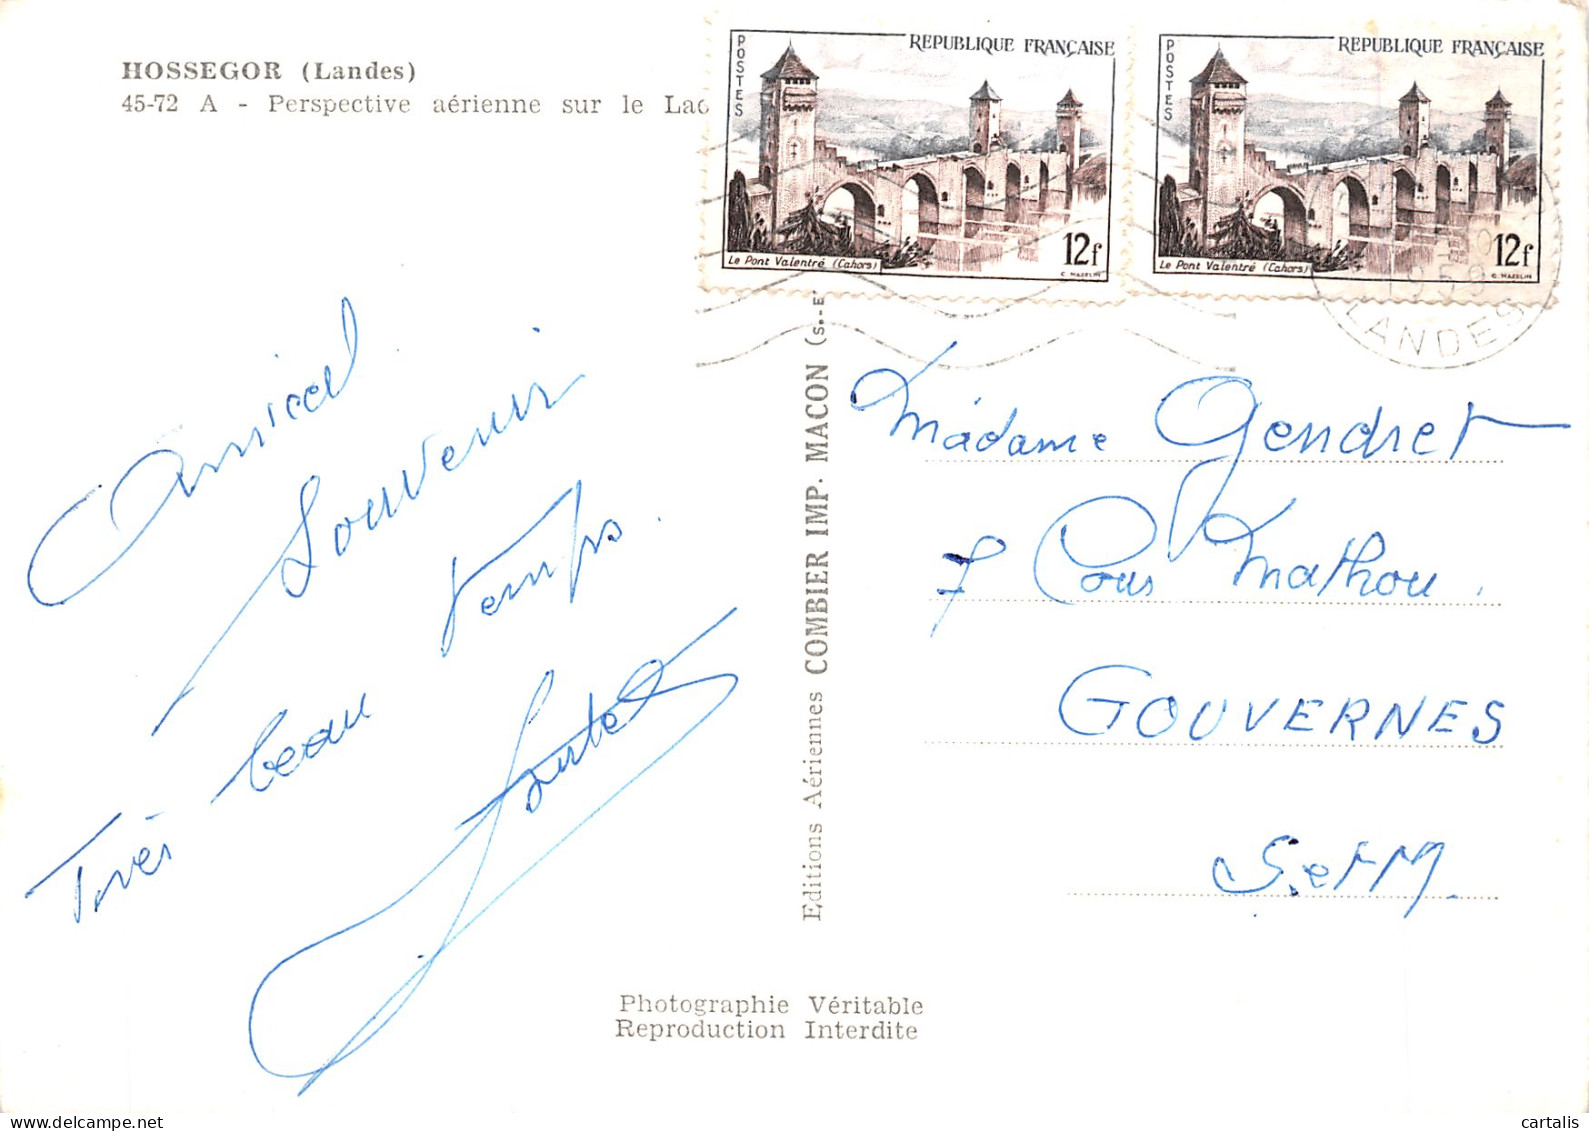 HOSSEGOR (Landes)
45-72 A - Perspective aérienne sur le Lac
POSTES
REPUBLIQUE FRANÇAISE
Le Pont Valentré (Cahors)
12f
C. HAZELIN
POSTES
REPUBLIQUE FRANÇAISE
Le Pont Valentré (Cahors)
12f
C. HAZELIN
LANDES
Amical
Souvenir
Très beau temps.
Editions Aériennes COMBIER IMP. MACON (S.-E
Madame Gendret
7 Cours Mathou.
GOUVERNES
S.etM.
Photographie Véritable
Reproduction Interdite
cartalis